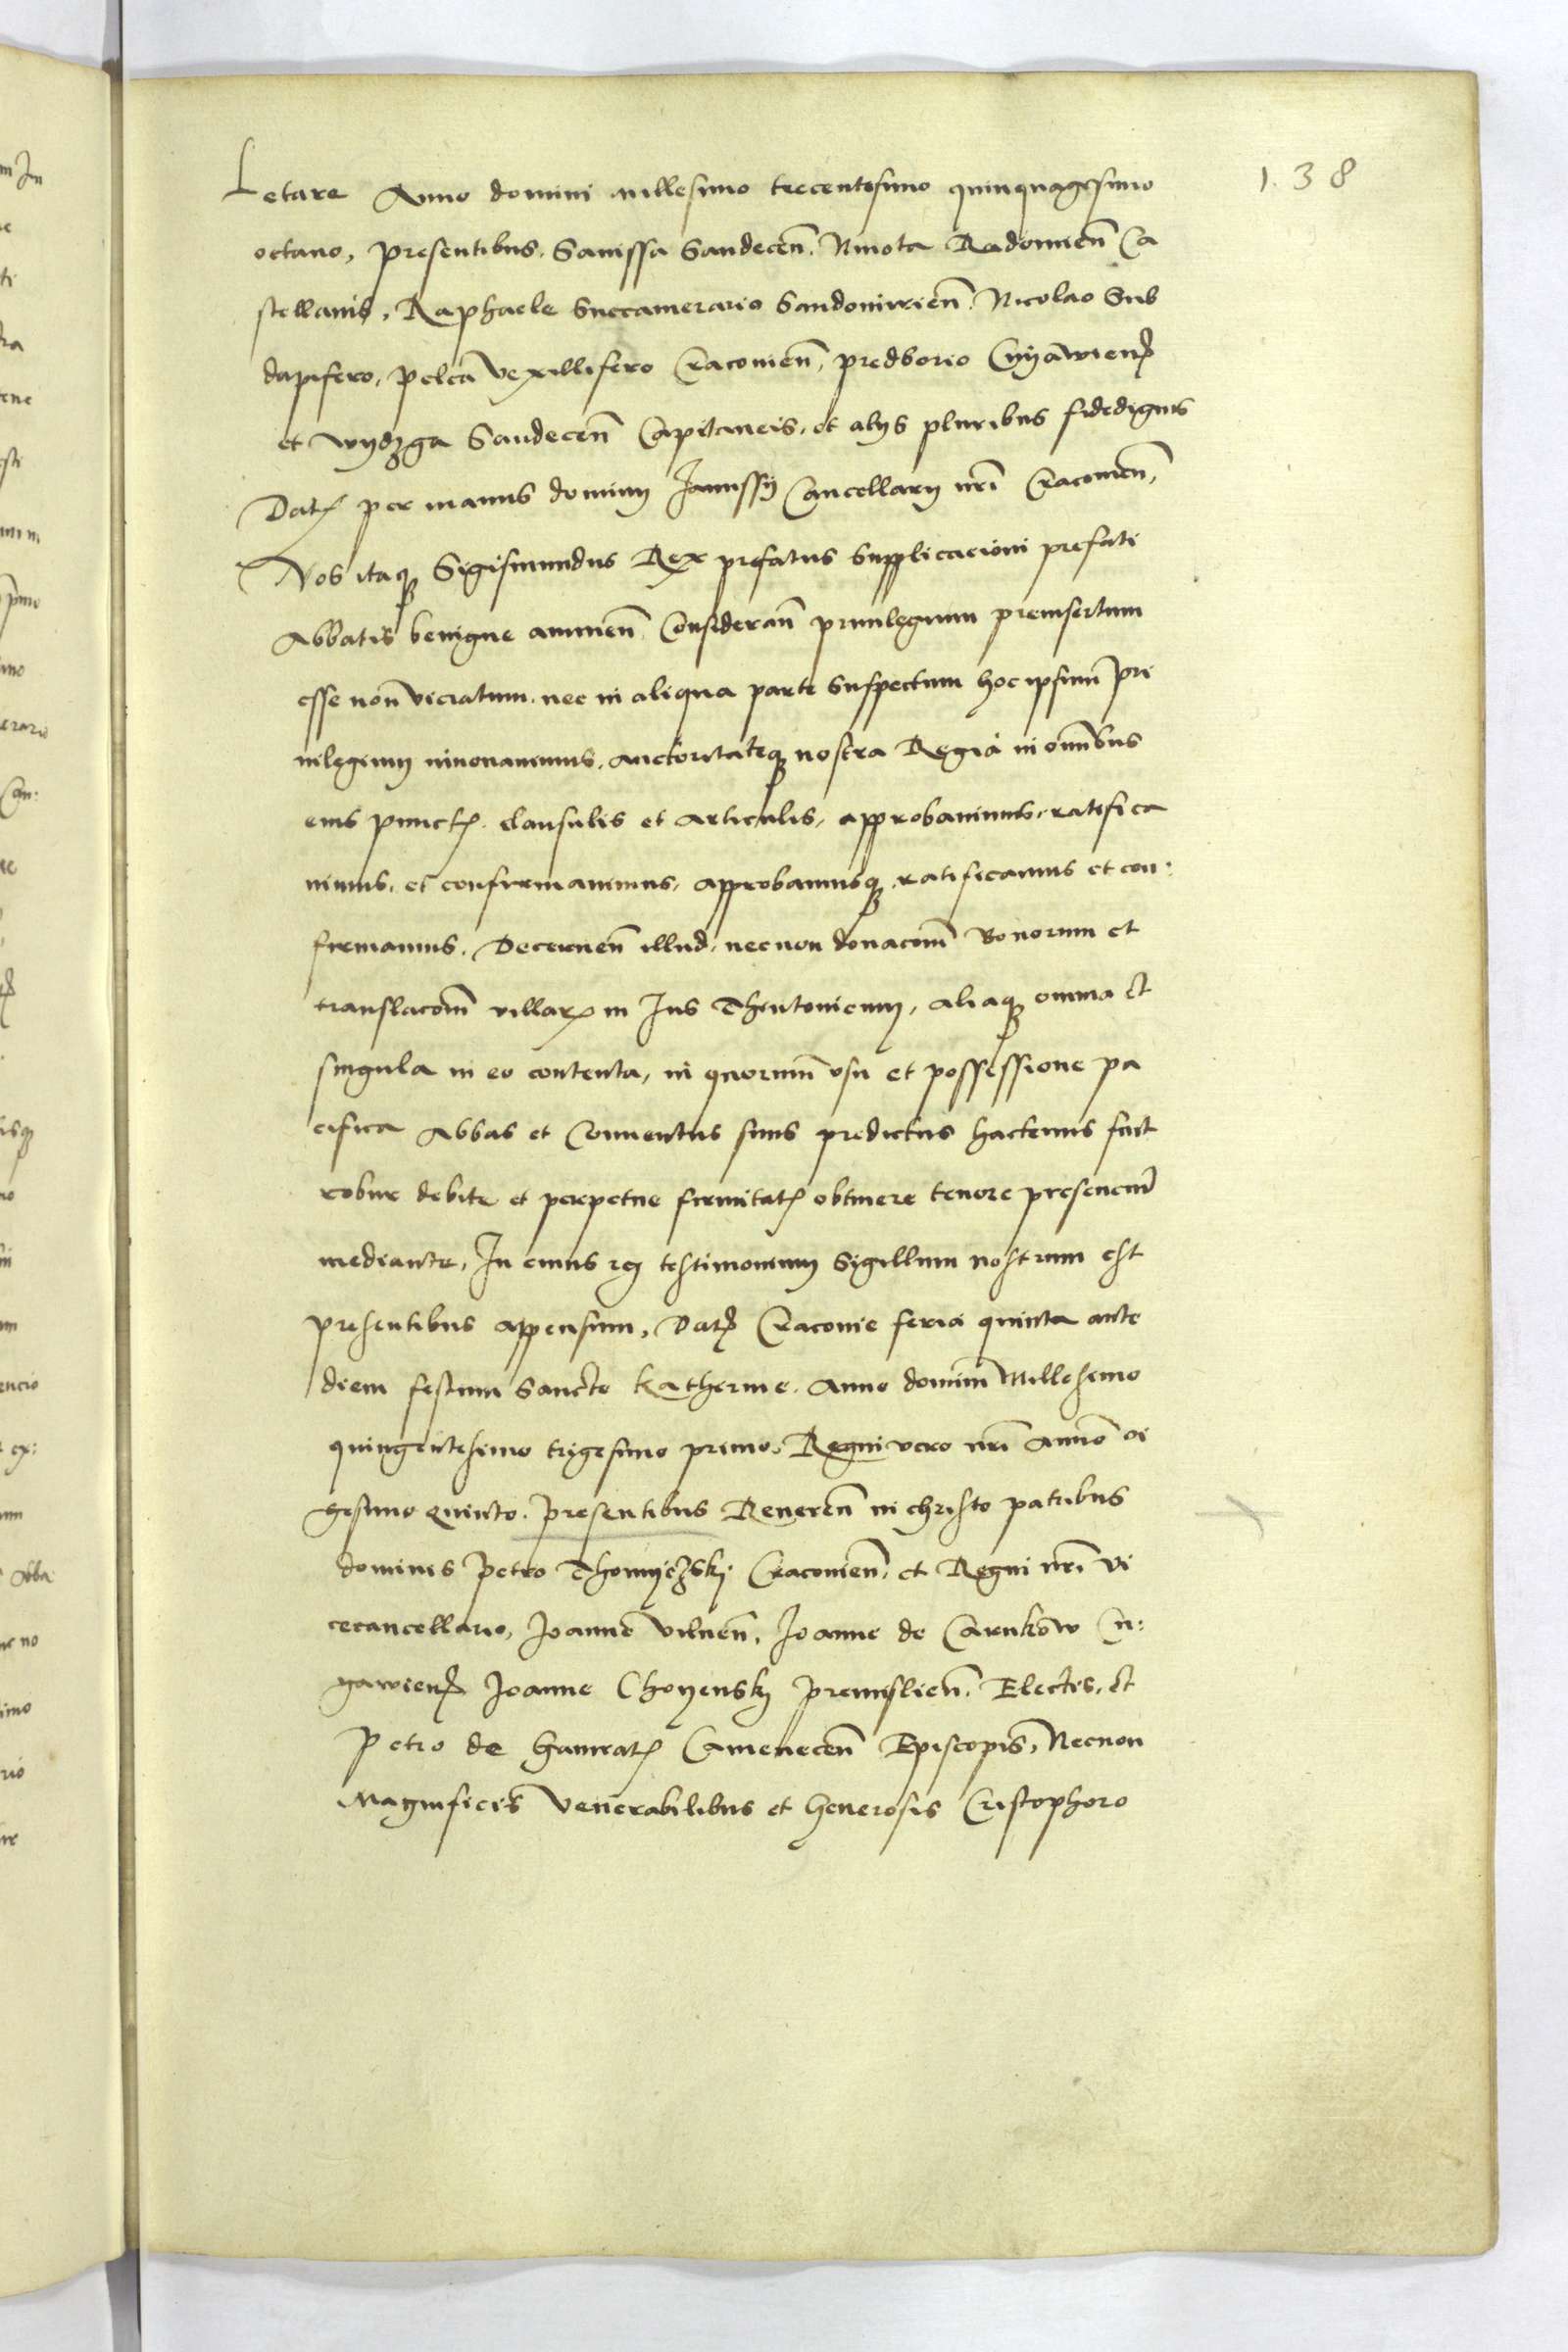 138
Letare Anno domini millesimo trecentesimo quinquagesimo
octavo, presentibus. Sanissa Sandecen̄. Nivota Radomien̄ Ca
stellanis, Raphaele Succamerario Sandomirien̄. Nicolao Sub
dapifero, pelca vexillifero Cracovien̄, predborio Cuyawien̄
et wydzga Sandecen̄ Capitaneis, et alys pluribus fidedignis
Dat per manus dominy Janussy Cancellary nr̄i Cracovien̄,
Nos itaq Sigismundus Rex prefatus Supplicacioni prefati
Abbatis benigne annuen̄. Consideran̄ privilegium preinsertum
esse non viciatum. nec in aliqua parte Suspectum hoc ipsum pri
vilegium innovavimus, auctoritateq nostra Regia in om̄ibus
eius punct. clausulis et Articulis, approbavimus, ratifica
vimus, et confirmavimus, approbamusq ratificamus et con:
firmamus. Decernen̄ illud, necnon donacom̄ Bonorum et
translacom̄ villar in Jus Theutonicum, aliaq omnia et
singula in eo contenta, in quorum̄ usu et possessione pa
cifica Abbas et Conventus suus predictus hactenus fuit
robur debite et perpetue firmitat obtinere tenore presencium̄
mediante, In cuius rei testimonium Sigillum nostrum est
presentibus appensum, Dat Cracovie feria quinta ante
diem festum Sancte Katherine. Anno domini Millesimo
quingentesimo trigesimo primo, Regni vero nr̄i Anno vi
gesimo Quinto. presentibus Reveren̄ in christo patribus
dominis Petro Thomyczsky Cracovien̄, et Regni nr̄i Vi
cecancellario, Joanne Vilnen̄, Joanne de Carnkow Cu:
yawien̄ Joanne Choyensky premislien̄. Electis, et
Petro de Gamrat Camenecen̄ Episcopis, Necnon
Magnificis Venerabilibus et Generosis Cristophoro